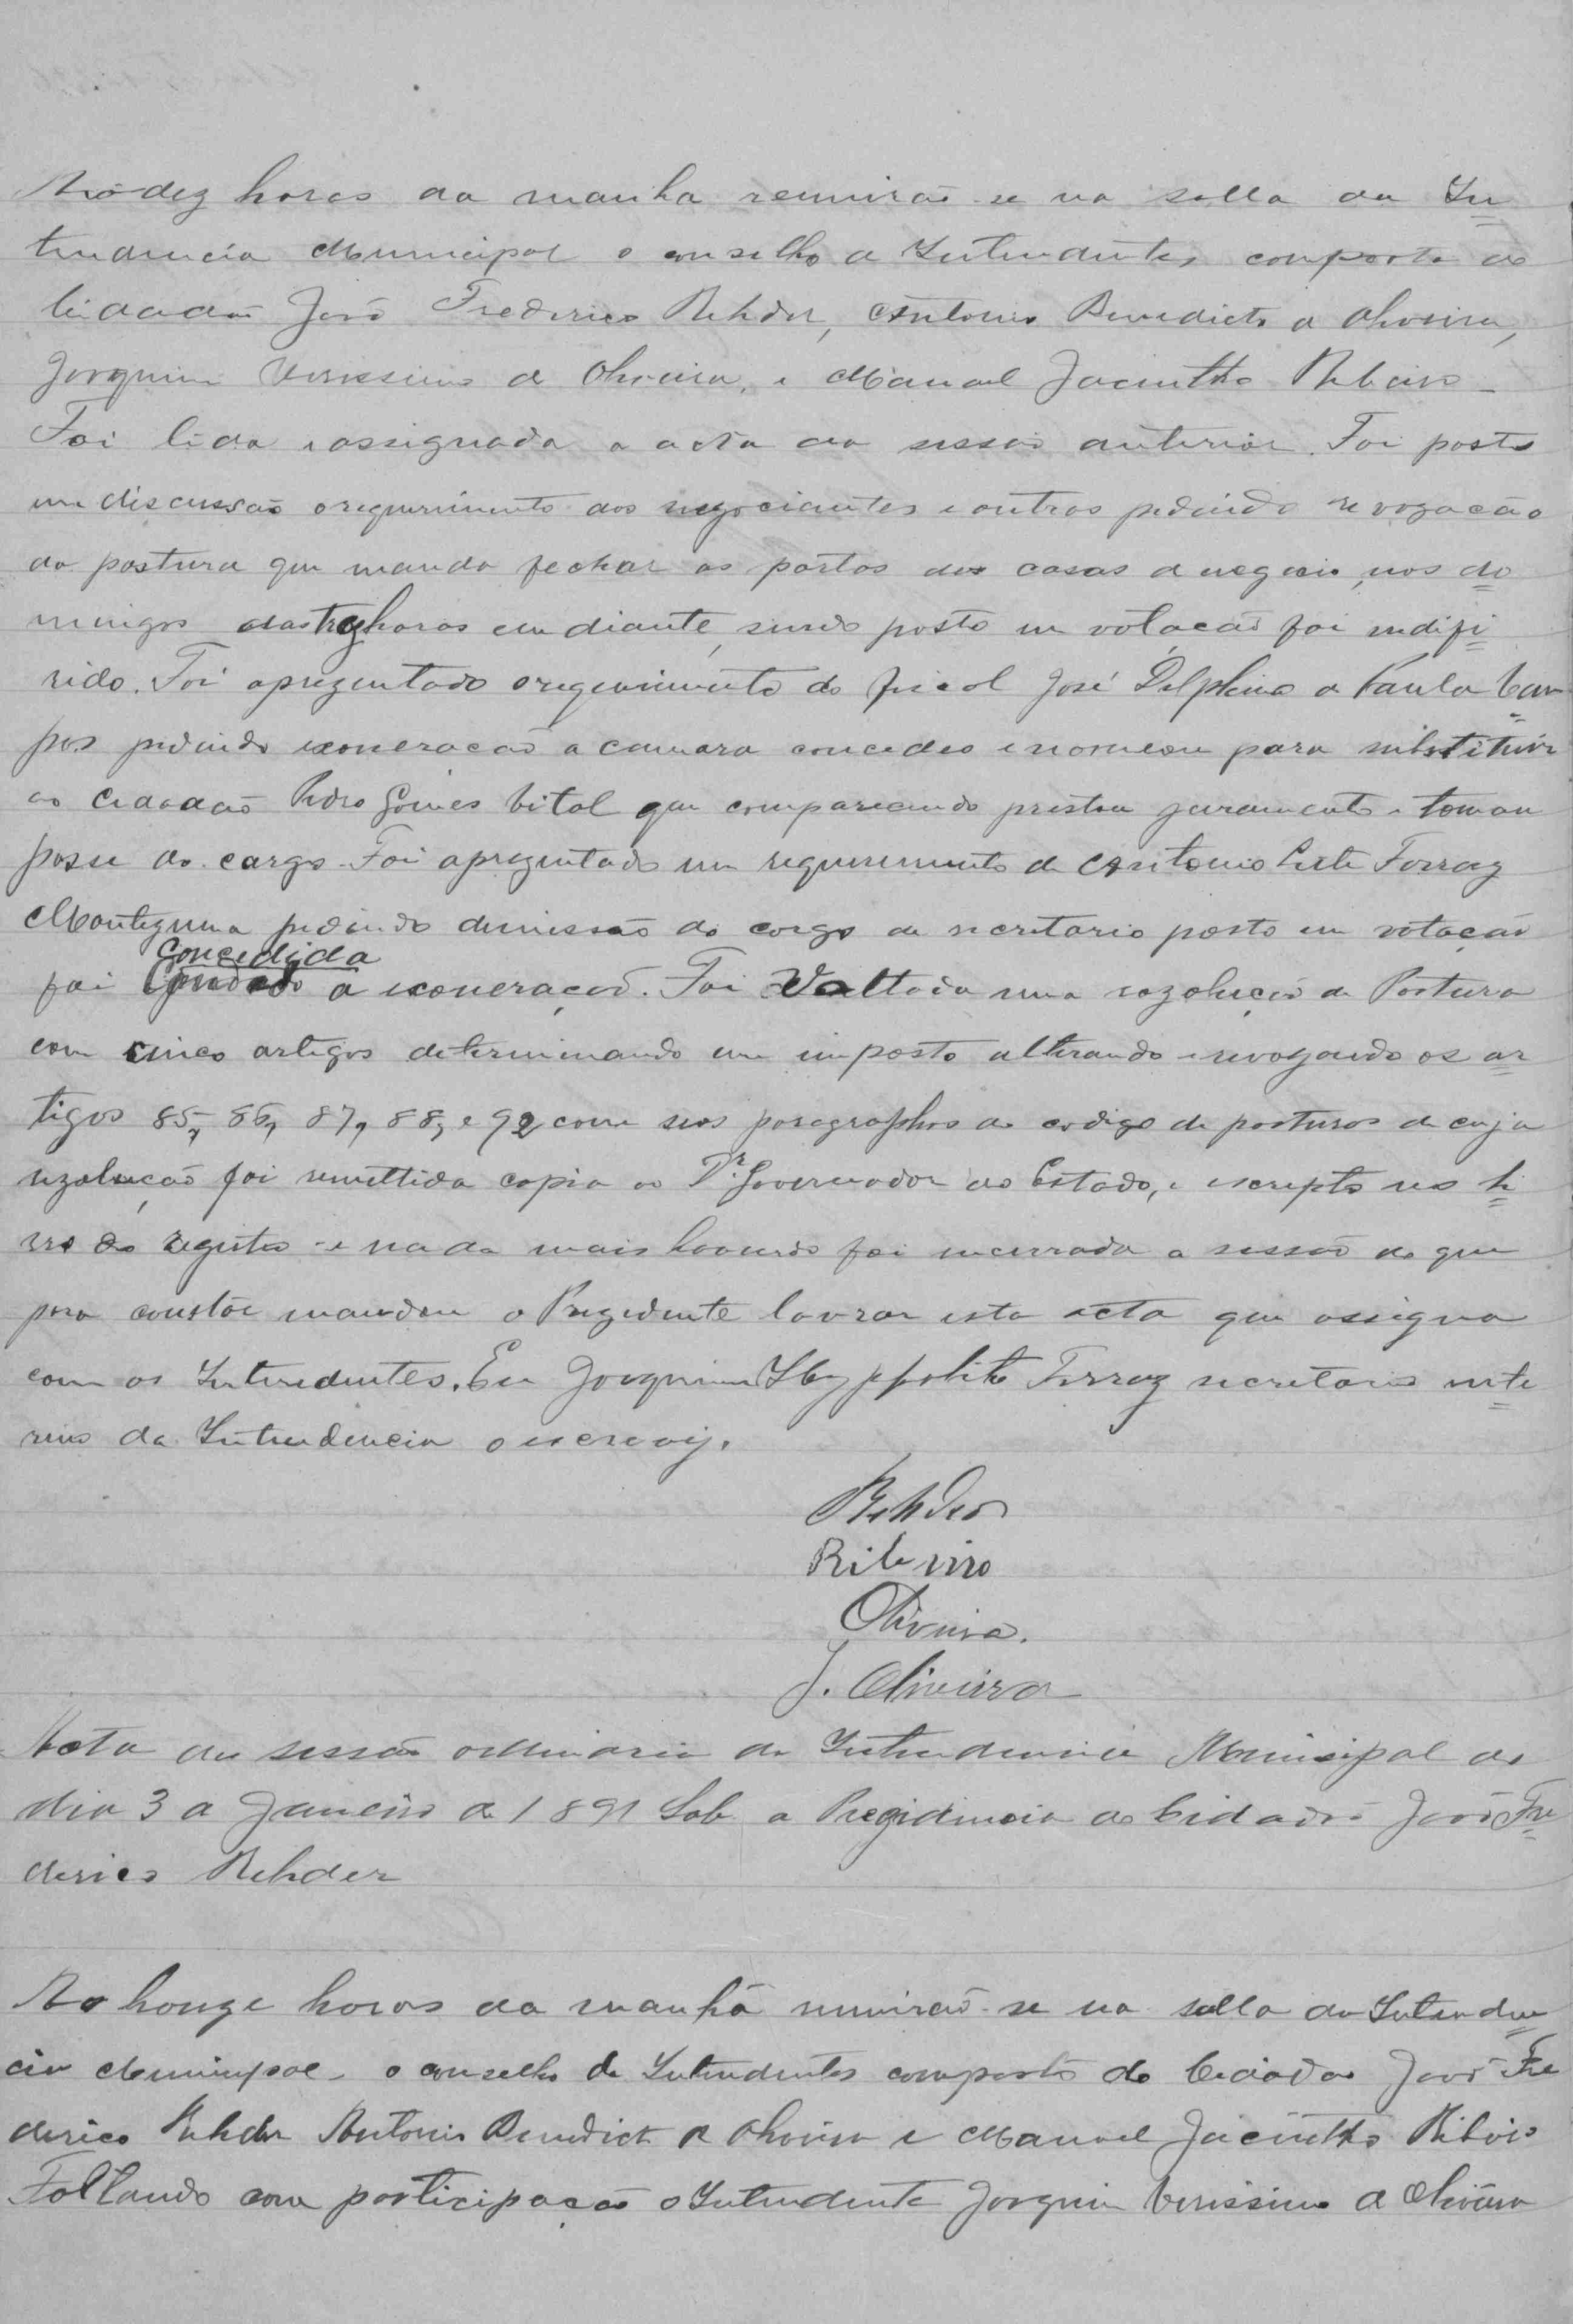 As dez horas da manha reunirão-se na salla da In
tendencia Municipal o conselho de Intendentes composto do
Cidadão João Frederico Rehder, Antonio Benedicto de Oliveira,
Joaquim Verissimo de Oliveira, e Manoel Jacintho Ribeiro
Foi lida e assignada a acta da sessão anterior. Foi posto
em discussão o requerimento dos negociantes e outros pedindo revogacão
da postura que manda fechar as portas das casas de negocio, nos do
mingos das trez horas em diante, sendo posto em votação foi indife
rido. Foi aprezentado o requerimento do fiscal José Delphino de Paula Cam
pos pedindo exoneracão a camara concedeo e nomeou para substituir
ao Cidadão Pedro Gomes Vital que comparecendo prestou juramento e tomou
posse do cargo. Foi aprezentado um requerimento de Antonio Leite Ferraz
Montezuma pedindo demissão do cargo de secretario posto em votação
concedida
foi a exoneração. Foi Voltada uma rezolução de Postura
com cinco artigos determinando um imposto alterando e revogando os ar
tigos 85, 86, 87, 88, e 92 com seos paragraphos do codigo de posturas de cuja
rezolução foi remettida copia ao Dr. Governador do Estado, e escripto no li
vro do registro e nada mais havendo foi encerrada a sessão do que
para constar mandou o Prezidente lavrar esta acta que assigna
com os Intendentes. Eu Joaquim Hyppolito Ferraz secretario inte
rino da Intendencia o escrevy.
Rehder
Ribeiro
Oliveira.
J. Oliveira
Acta da sessão ordinaria da Intendencia Municipal do
dia 3 de Janeiro de 1891 Sob a Prezidencia do Cidadão João Fre
derico Rehder
As honze horas da manhã reunirão-se na salla da Intenden
cia Municipal o conselho de Intendentes composto do Cidadão João Fre
derico Rehder Antonio Benedicto de Oliveira e Manoel Jacintho Ribeiro
Faltando com participação o Intendente Joaquim Verissimo de Oliveira